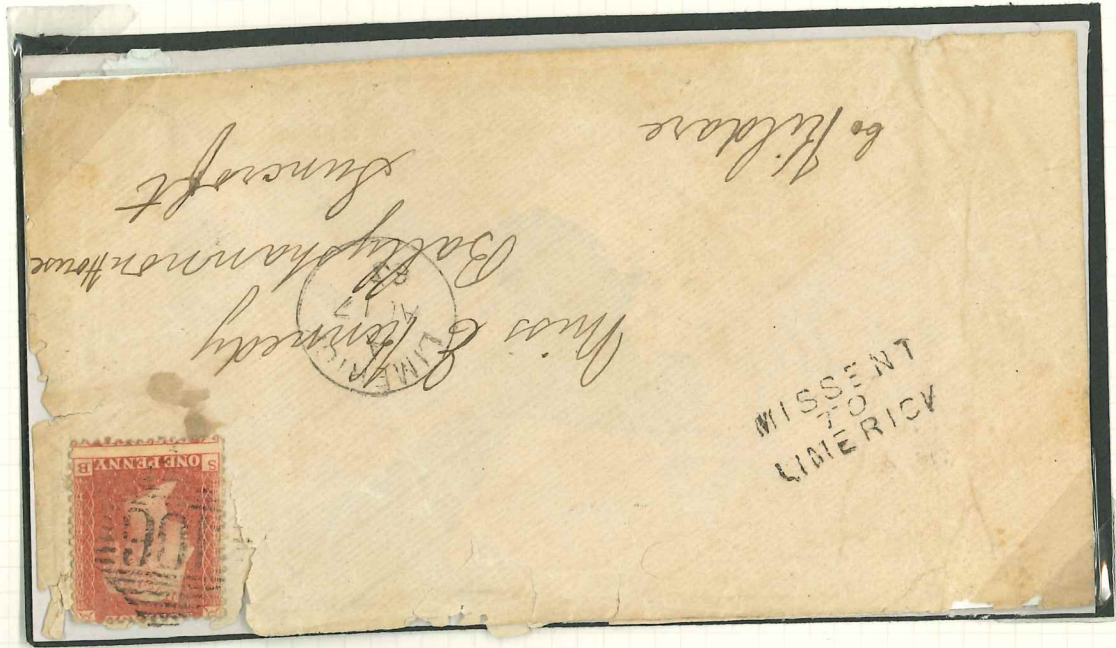 Miss E Kennedy
Ballyshannon House
Suncroft
Co. Kildare
LIMERICK
AU 17
MISSENT
TO
LIMERICK
106
B ONE PENNY S